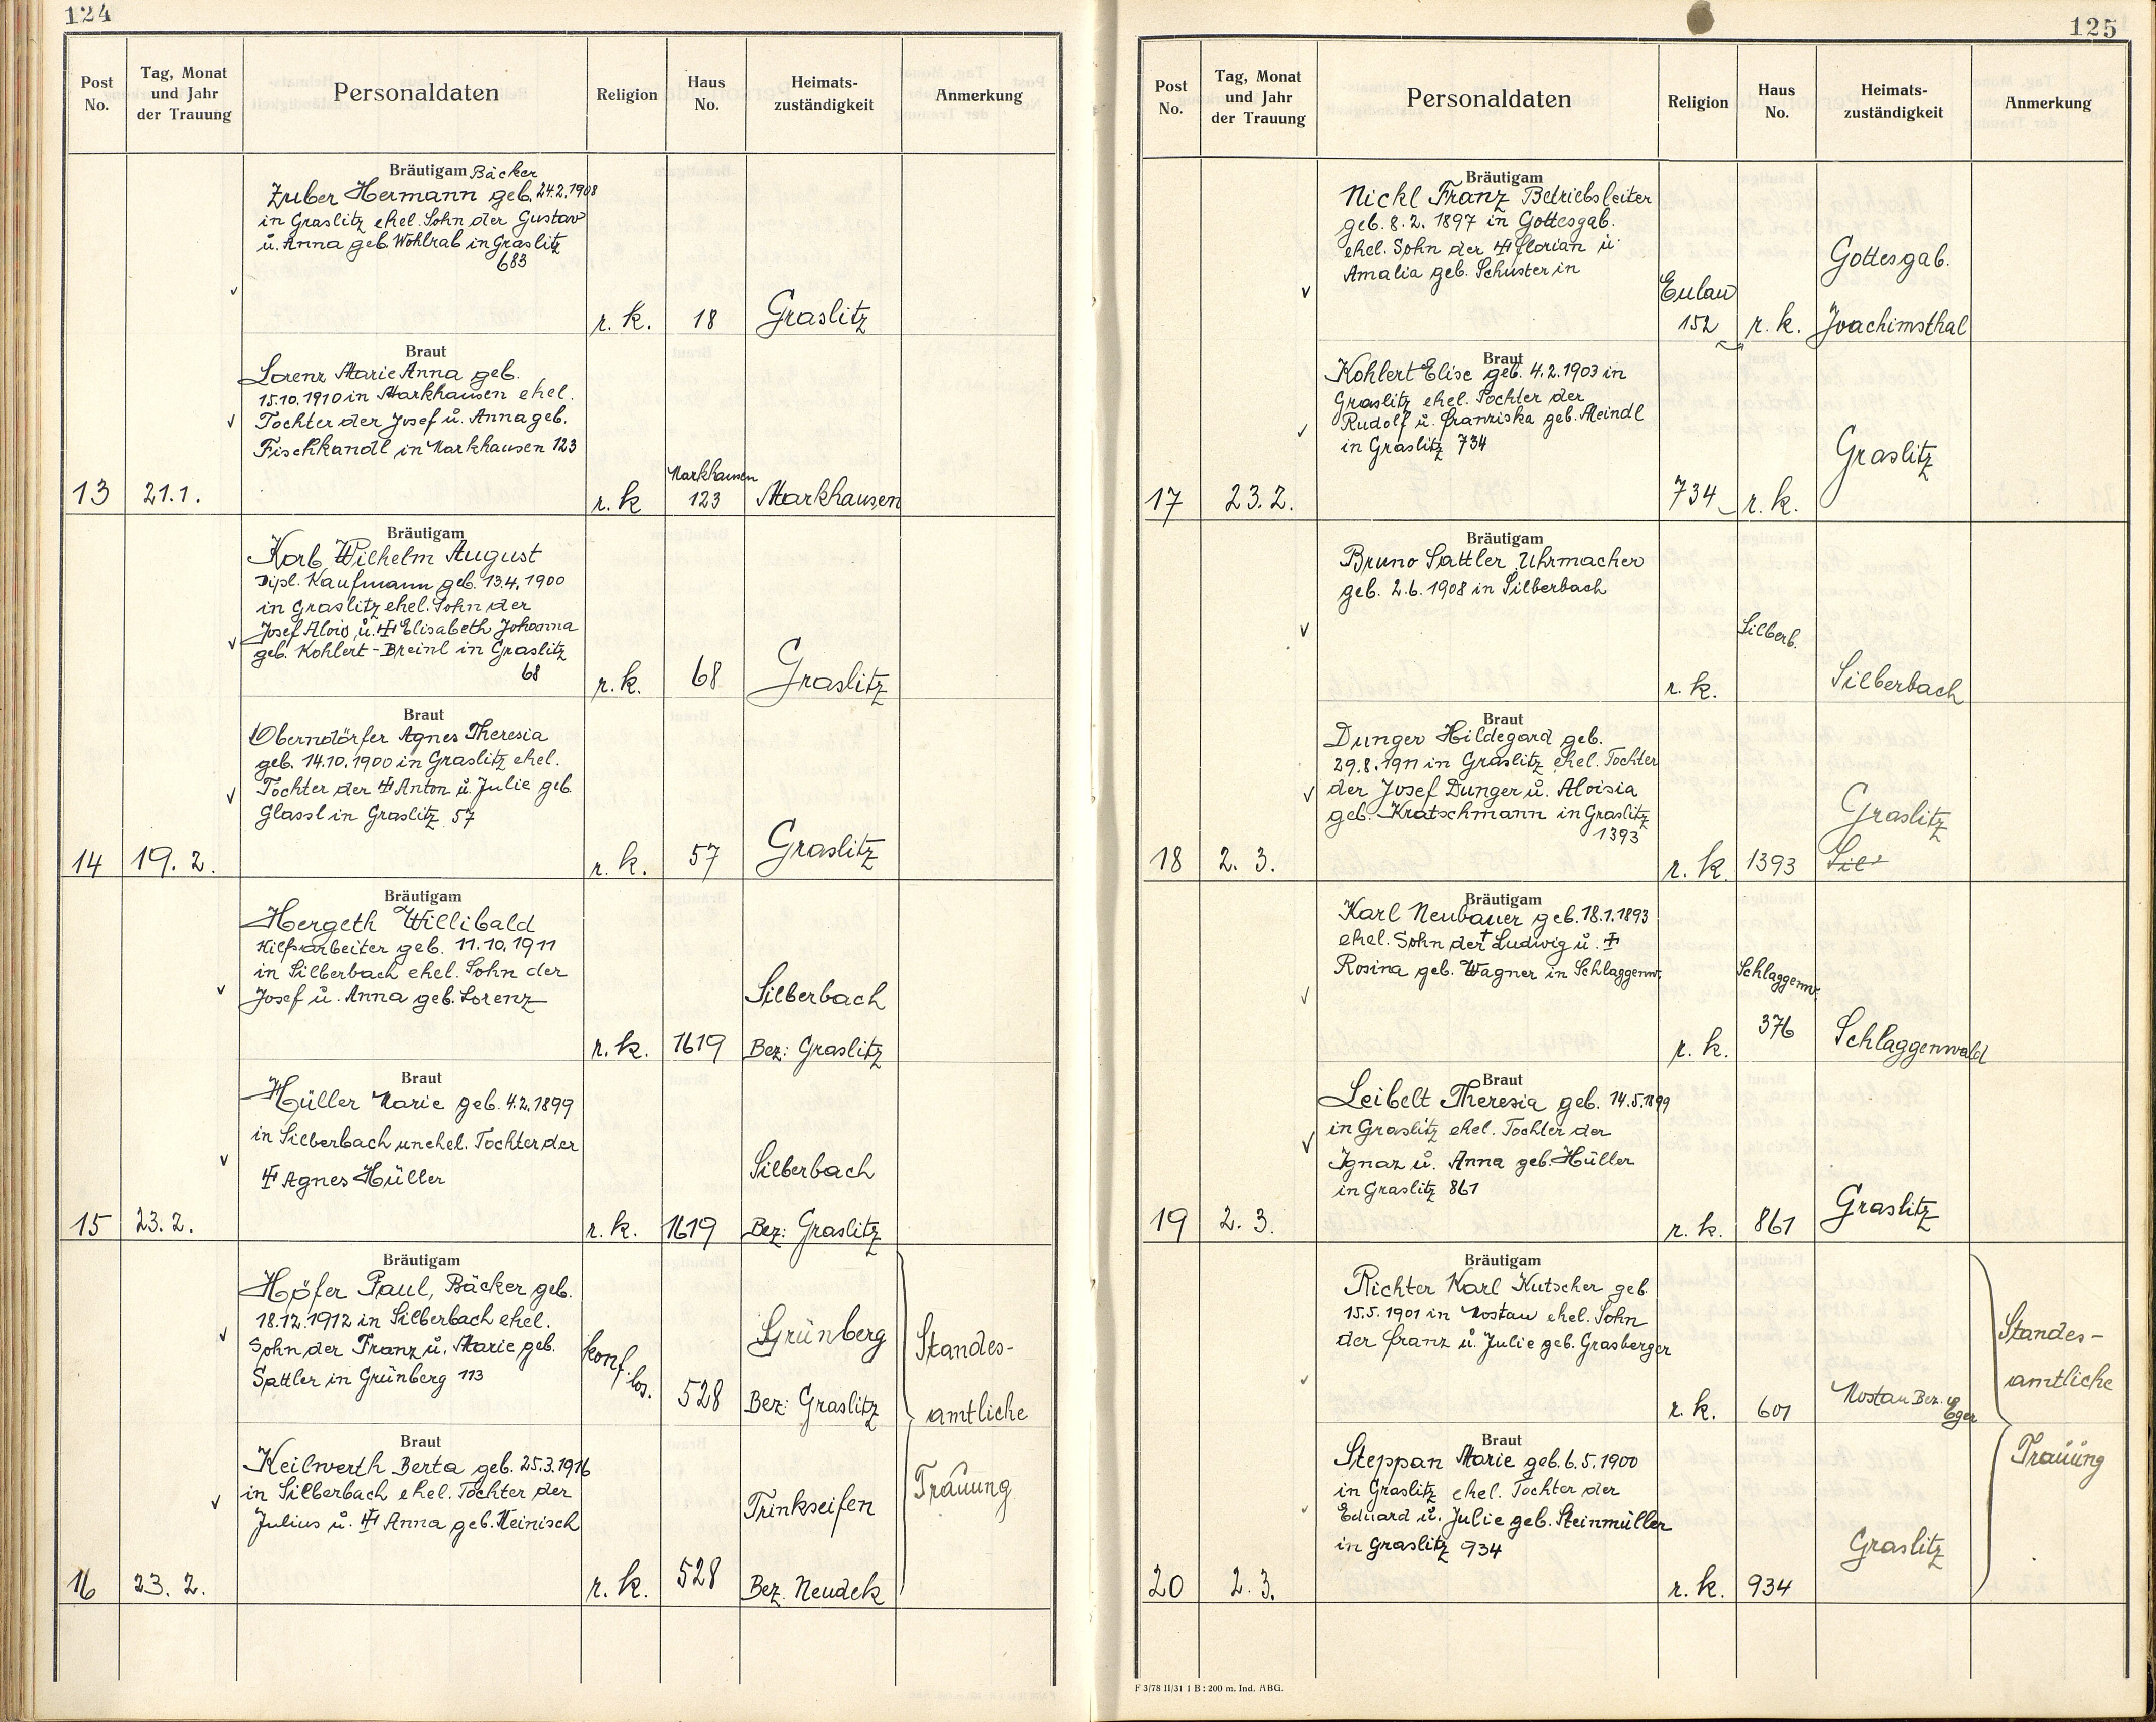 124
Post No.
Tag, Monat und Jahr der Trauung
Personaldaten
Religion
Haus No.
Heimats-zuständigkeit
Anmerkung
Bräutigam Bäcker
Zuber Hermann geb. 24.2.1908
in Graslitz ehel. Sohn der Gustav
u. Anna geb. Wohlrab in Graslitz
683
r. k.
18
Graslitz
Braut
Lorenz Marie Anna geb.
15.10.1910 in Markhausen ehel.
Tochter der Josef u. Anna geb.
Fischkandl in Markhausen 123
13
21.1.
r. k
Markhausen
123
Markhausen
Bräutigam
Korb Wilhelm August
Dipl. Kaufmann geb. 13.4.1900
in Graslitz ehel. Sohn der
Josef Alois u. Elisabeth Johanna
geb. Kohlert-Breinl in Graslitz
68
r. k.
68
Graslitz
Braut
Oberndörfer Agnes Theresia
geb. 14.10.1900 in Graslitz ehel.
Tochter der Anton u. Julie geb.
Glassl in Graslitz 57
14
19. 2.
r. k.
57
Graslitz
Bräutigam
Hergeth Willibald
Hilfsarbeiter geb. 11.10.1911
in Silberbach ehel. Sohn der
Josef u. Anna geb. Lorenz
r. k.
1619
Silberbach
Bez: Graslitz
Braut
Hüller Marie geb. 4.2.1899
in Silberbach unehel. Tochter der
Agnes Hüller
15
23. 2.
r. k.
1619
Silberbach
Bez: Graslitz
Bräutigam
Höfer Paul, Bäcker geb.
18.12.1912 in Silberbach ehel.
Sohn der Franz u. Marie geb.
Sattler in Grünberg 113
konf.los.
528
Grünberg
Bez: Graslitz
Standes-
amtliche
Trauung
Braut
Keilwerth Berta geb. 25.3.1916
in Silberbach ehel. Tochter der
Julius u. Anna geb. Heinisch
16
23. 2.
r. k.
528
Trinkseifen
Bez. Neudek
125
Post No.
Tag, Monat und Jahr der Trauung
Personaldaten
Religion
Haus No.
Heimats-zuständigkeit
Anmerkung
Bräutigam
Nickl Franz Betriebsleiter
geb. 8.2. 1897 in Gottesgab.
ehel. Sohn der Florian u.
Amalia geb. Schuster in
Eulau
152
r. k.
Gottesgab.
Joachimsthal
Braut
Kohlert Elise geb. 4.2.1903 in
Graslitz ehel. Tochter der
Rudolf u. Franziska geb. Meindl
in Graslitz 734
17
23. 2.
734
r. k.
Graslitz
Bräutigam
Bruno Sattler Uhrmacher
geb. 2.6.1908 in Silberbach
r. k.
Silberb.
Silberbach
Braut
Dunger Hildegard geb.
29.8.1911 in Graslitz ehel. Tochter
der Josef Dunger u. Aloisia
geb. Kratschmann in Graslitz
1393
18
2. 3.
r. k.
1393
Graslitz
Sil
Bräutigam
Karl Neubauer geb. 18.1.1893
ehel. Sohn der † Ludwig u.
Rosina geb. Wagner in Schlaggenw.
r. k.
Schlaggenw.
376
Schlaggenwald
Braut
Leibelt Theresia geb. 14.5.1899
in Graslitz ehel. Tochter der
Ignaz u. Anna geb. Hüller
in Graslitz 861
19
2. 3.
r. k.
861
Graslitz
Bräutigam
Richter Karl Kutscher geb.
15.5.1901 in Mostau ehel. Sohn
der Franz u. Julie geb. Grasberger
r. k.
601
Mostau Bez. Eger
Standes-
amtliche
Trauung
Braut
Steppan Marie geb. 6.5.1900
in Graslitz ehel. Tochter der
Eduard u. Julie geb. Steinmüller
in Graslitz 934
20
2. 3.
r. k.
934
Graslitz
F 3/78 II/31 I B : 200 m. Ind. ABG.